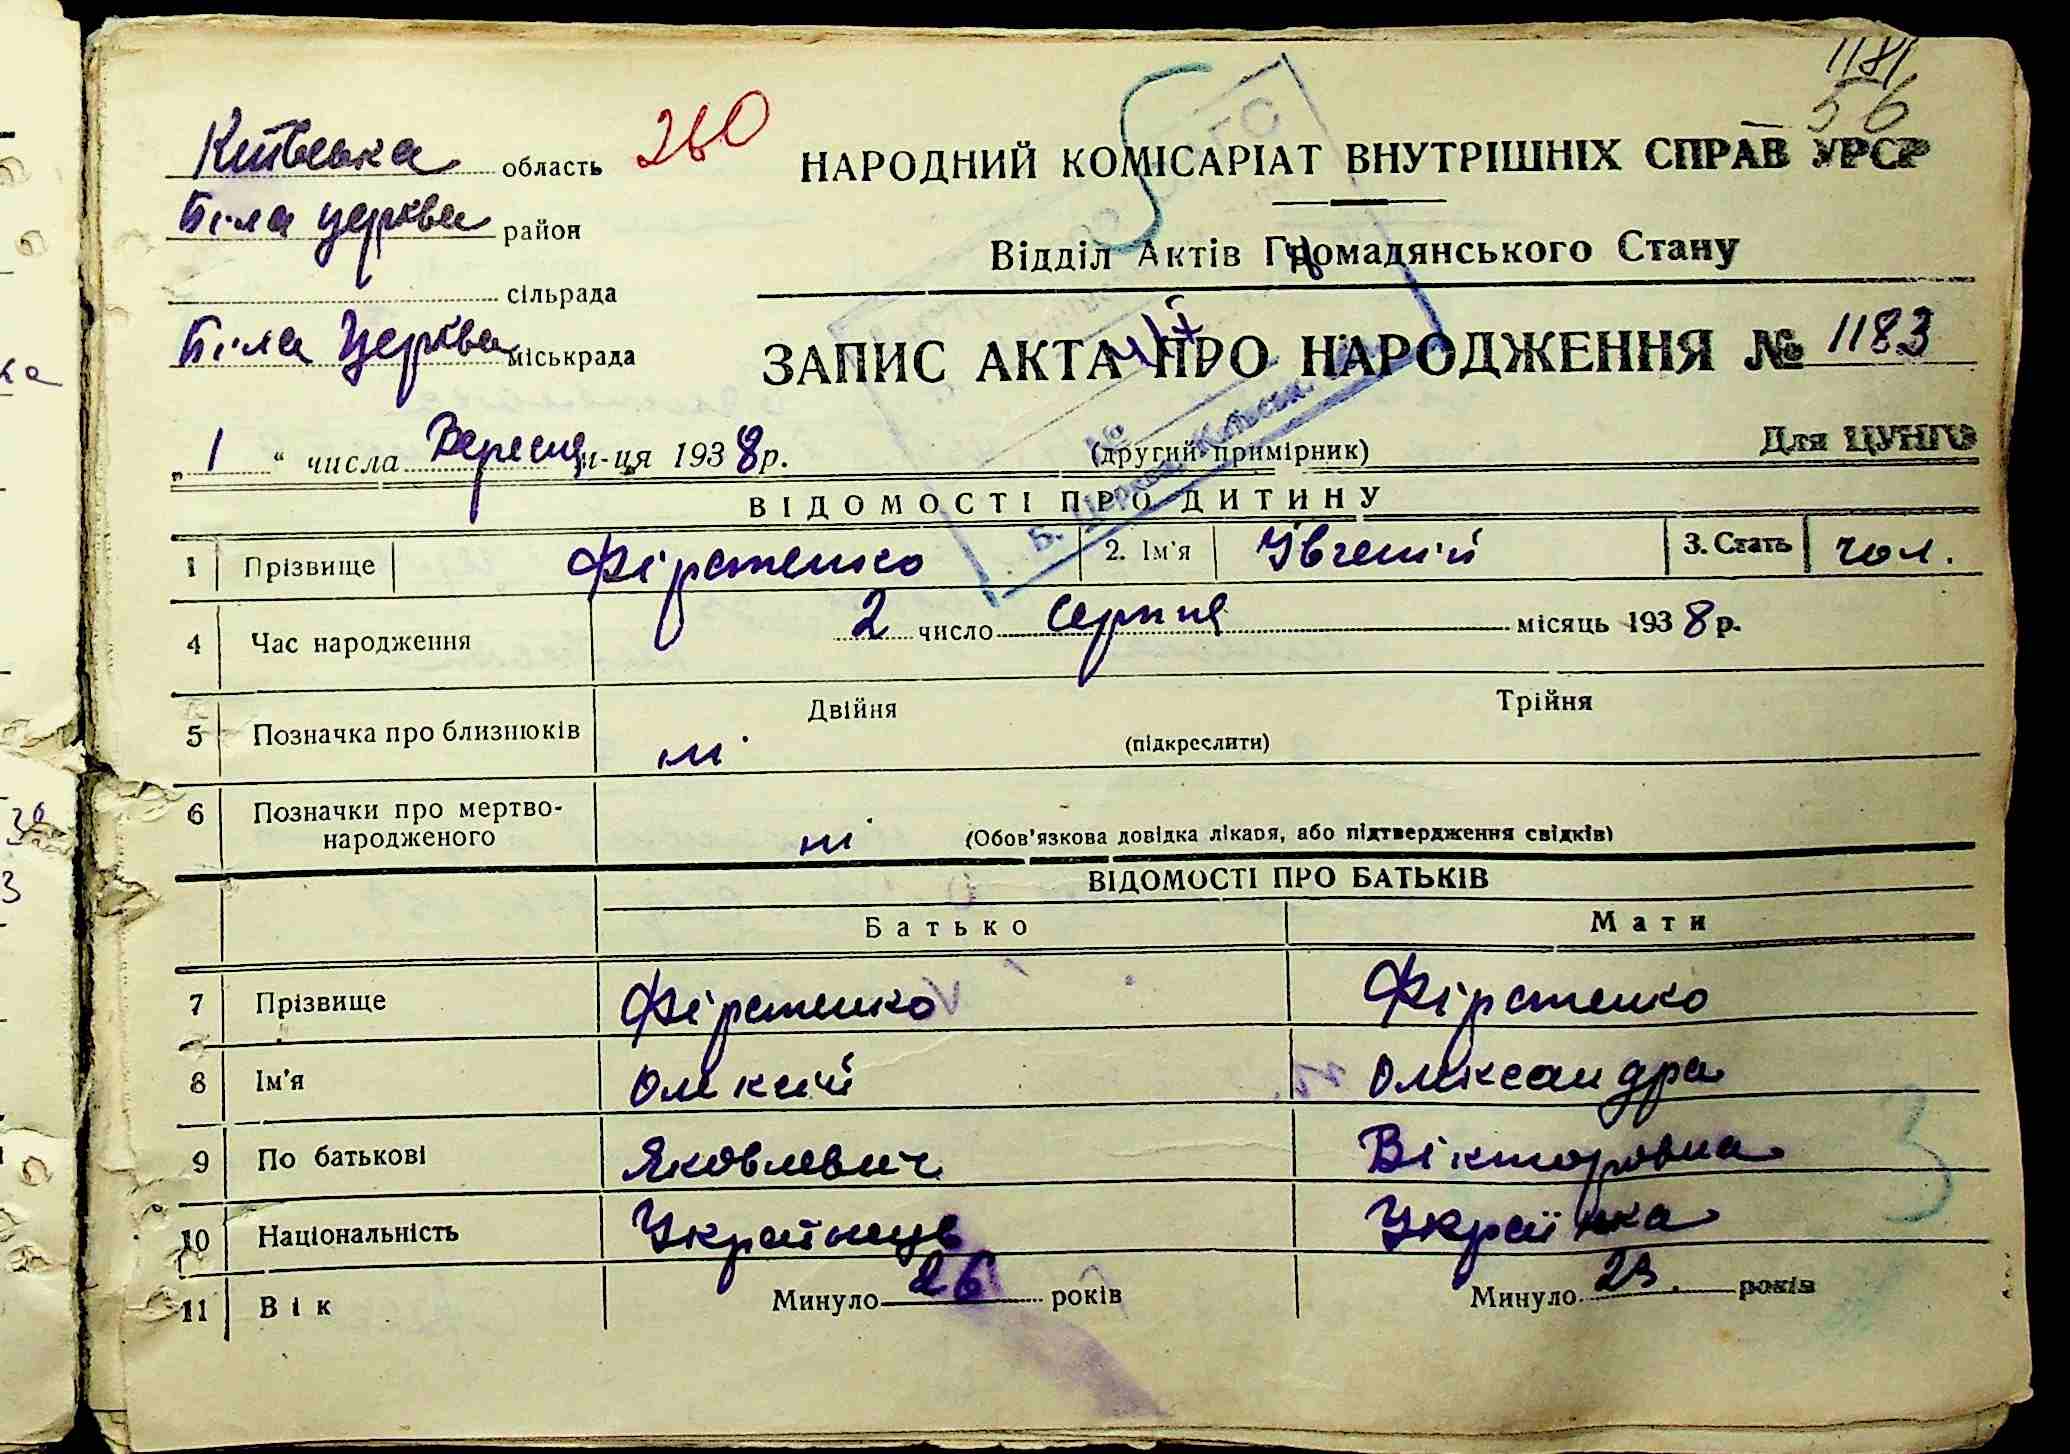 1181
56
Київська область 260
НАРОДНИЙ КОМІСАРІАТ ВНУТРІШНІХ СПРАВ УРСР
Біла церква район
Відділ Актів Громадянського Стану
сільрада
Біла Церква міськрада
ЗАПИС АКТА ПРО НАРОДЖЕННЯ № 1183
„ 1 “ числа Вересня м-ця 1938 р.
(другий примірник)
Для ЦУНГО
№
Б. Церква, Київськ.
ВІДОМОСТІ ПРО ДИТИНУ
1 Прізвище Фірстенко 2. Ім'я Євгеній 3. Стать чол.
4 Час народження 2 число серпня місяць 1938 р.
5 Позначка про близнюків ні Двійня (підкреслити) Трійня
6 Позначки про мертво-
народженого ні (Обов'язкова довідка лікаря, або підтвердження свідків)
ВІДОМОСТІ ПРО БАТЬКІВ
Батько Мати
7 Прізвище Фірстенко Фірстенко
8 Ім'я Олексій Олександра
9 По батькові Яковлевич Вікторовна
10 Національність Українець Українка
11 Вік Минуло 26 років Минуло 23. років
3